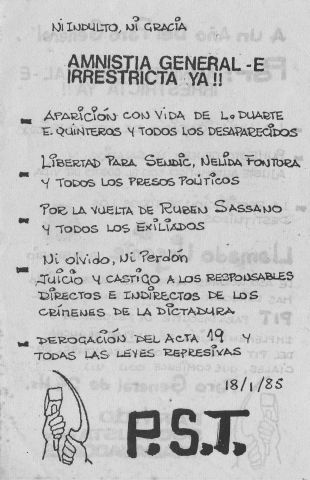 Ni INDULTO, Ni GRACIA
AMNISTIA GENERAL -E
IRRESTRICTA YA !!
- APARICIÓN CON VIDA DE L. DUARTE
E. QUINTEROS Y TODOS LOS DESAPARECIDOS
- LIBERTAD PARA SENDIC, NELIDA FONTORA
Y TODOS LOS PRESOS POLÍTICOS
- POR LA VUELTA DE RUBEN SASSANO
Y TODOS LOS EXILIADOS
- Ni olvido, Ni Perdón
JUICIO Y CASTIGO A LOS RESPONSABLES
DIRECTOS E INDIRECTOS DE LOS
CRÍMENES DE LA DICTADURA
- DEROGACIÓN DEL ACTA 19 Y
TODAS LAS LEYES REPRESIVAS
18/1/85
P.S.T.